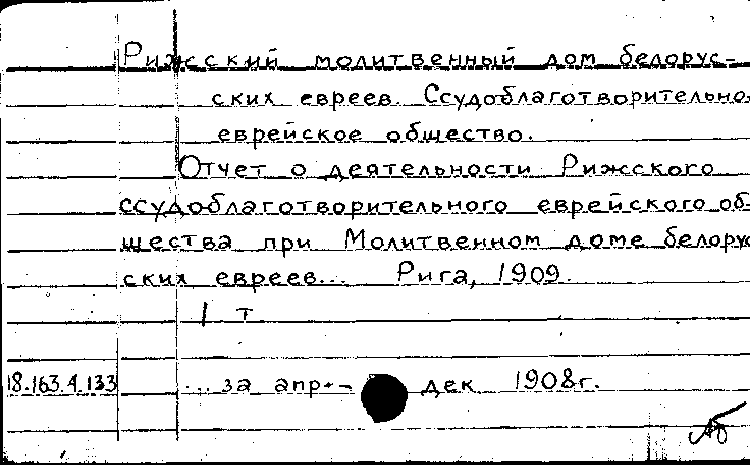 Рижский молитвенный дом белорус-
ских евреев. Ссудоблаготворительно-
еврейское общество.
Отчет о деятельности Рижского
ссудоблаготворительного еврейского об-
щества при Молитвенном доме белорус
ских евреев... Рига, 1909.
1 т
18.163.4.133 ... за апр.- дек 1908г.